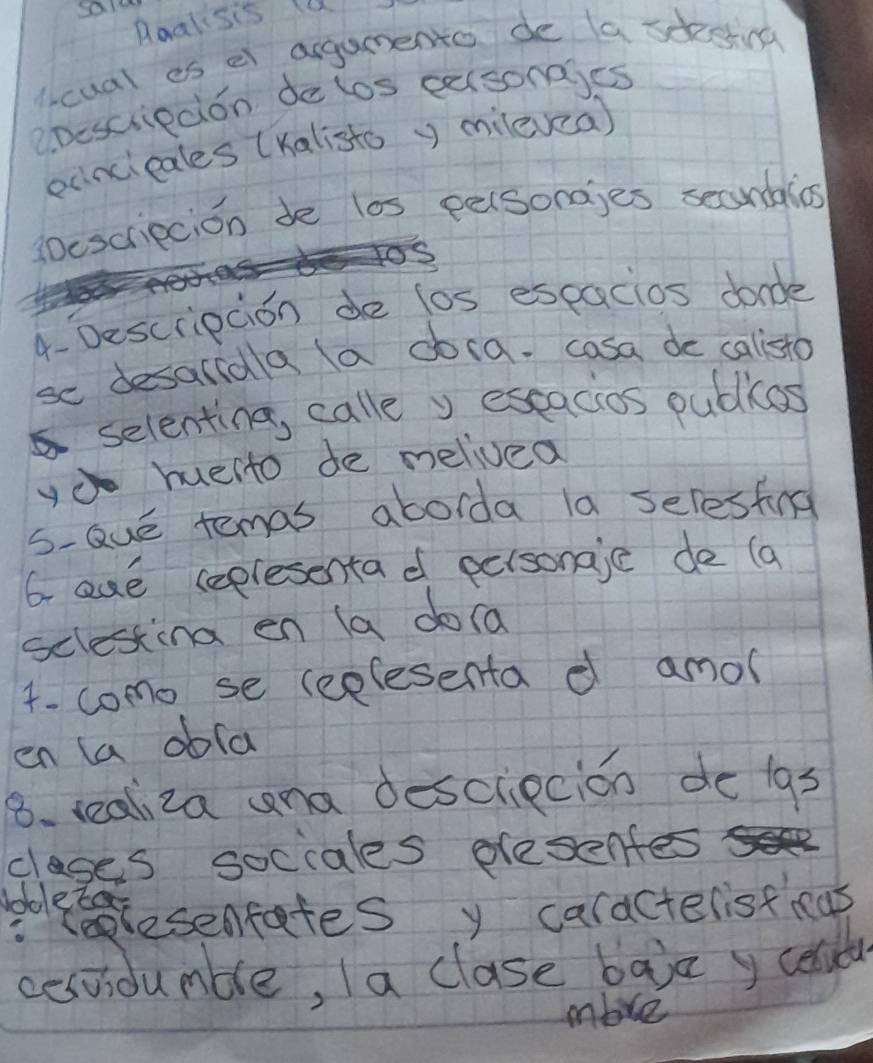 Analisis la
1. cual es el argumento de la selestina
2. Descripción de los personajes
principales (Kalisto y milevea)
3 Descripción de los personajes secundarios
4- Descripción de los espacios donde
se desarrolla la obra. casa de calisto
selentina, calle y espacios publicos
y huerto de melivea
5- Qué temas aborda la selestina
6- Qué representa el personaje de la
selestina en la obra
7- como se representa el amor
en la obra
8- realiza una descripción de las
clases sociales presentes
nobleza:
representates y caracteristicas
cervidumbre, la clase baja y cervidu-
mbre